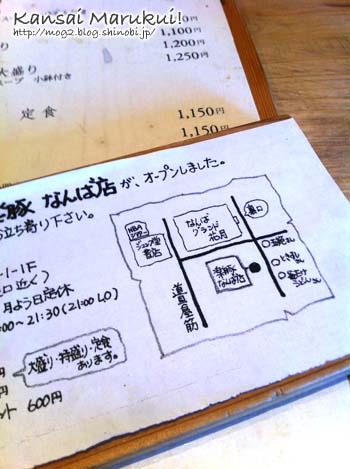 Kansai Marukui!
http://mog2.blog.shinobi.jp/
1,100円
1,200円
大盛り
1,250円
スープ 小鉢付き
定食
1,150円
1,150円
豚 なんば店が、オープンしました。
立ち寄り下さい。
-1-1F
口近く)
月よう日定休
00~21:30(21:00 LO)
大盛り・特盛り・定食
あります。
600円
ジュンク堂
書店
なんば
グランド
花月
裏口
道具屋筋
楽豚
なんば店